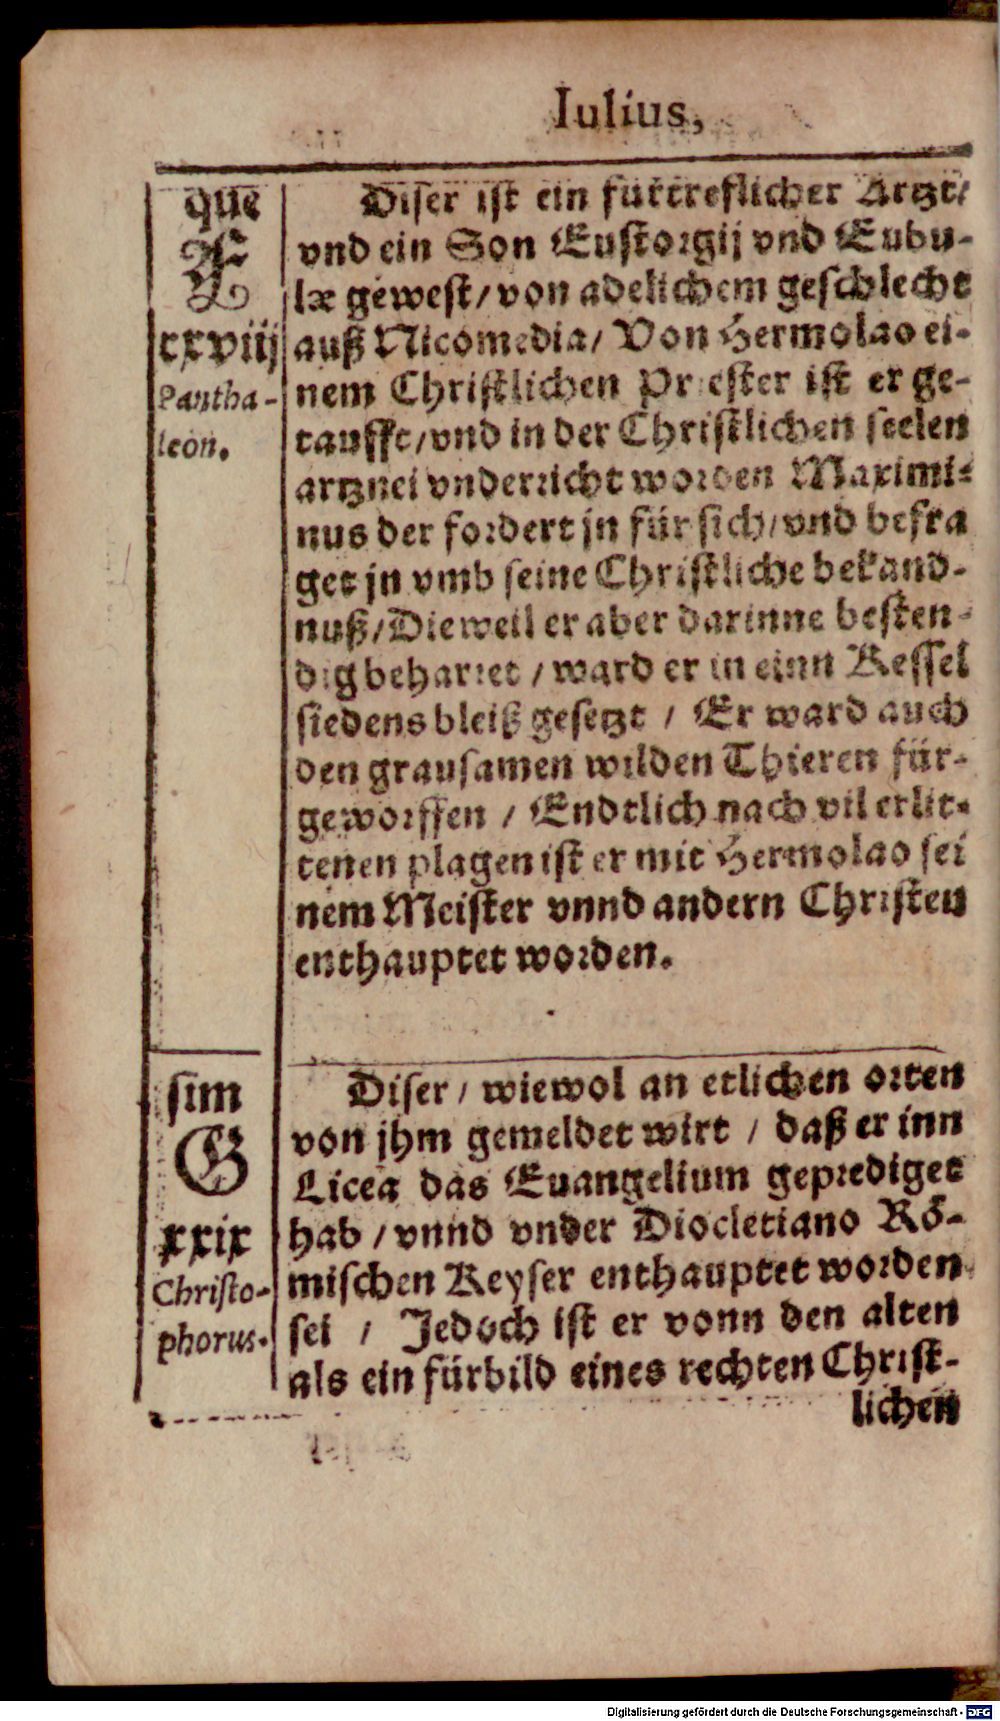 Iulius,
que
F
xxviij
Pantha-
leon.
Diser ist ein fürtreflicher Artzt/
vnd ein Son Eustorgij vnd Eubu-
læ gewest/ von adelichem geschlecht
auß Nicomedia/ Von Hermolao ei-
nem Christlichen Priester ist er ge-
taufft/ vnd in der Christlichen seelen
artznei vnderricht worden Maximi-
nus der fordert jn für sich/ vnd befra
get jn vmb seine Christliche bekand-
nuß/ Dieweil er aber darinne besten-
dig beharret / ward er in einn Kessel
siedens bleiß gesetzt / Er ward auch
den grausamen wilden Thieren für-
geworffen / Endtlich nach vil erlit-
tenen plagen ist er mit Hermolao sei
nem Meister vnnd andern Christen
enthauptet worden.
sim
G
xxix
Christo-
phorus.
Diser / wiewol an etlichen orten
von jhm gemeldet wirt / daß er inn
Licea das Euangelium geprediget
hab / vnnd vnder Diocletiano Rö-
mischen Keyser enthauptet worden
sei / Jedoch ist er vonn den alten
als ein fürbild eines rechten Christ-
lichen
Digitalisierung gefördert durch die Deutsche Forschungsgemeinschaft - DFG